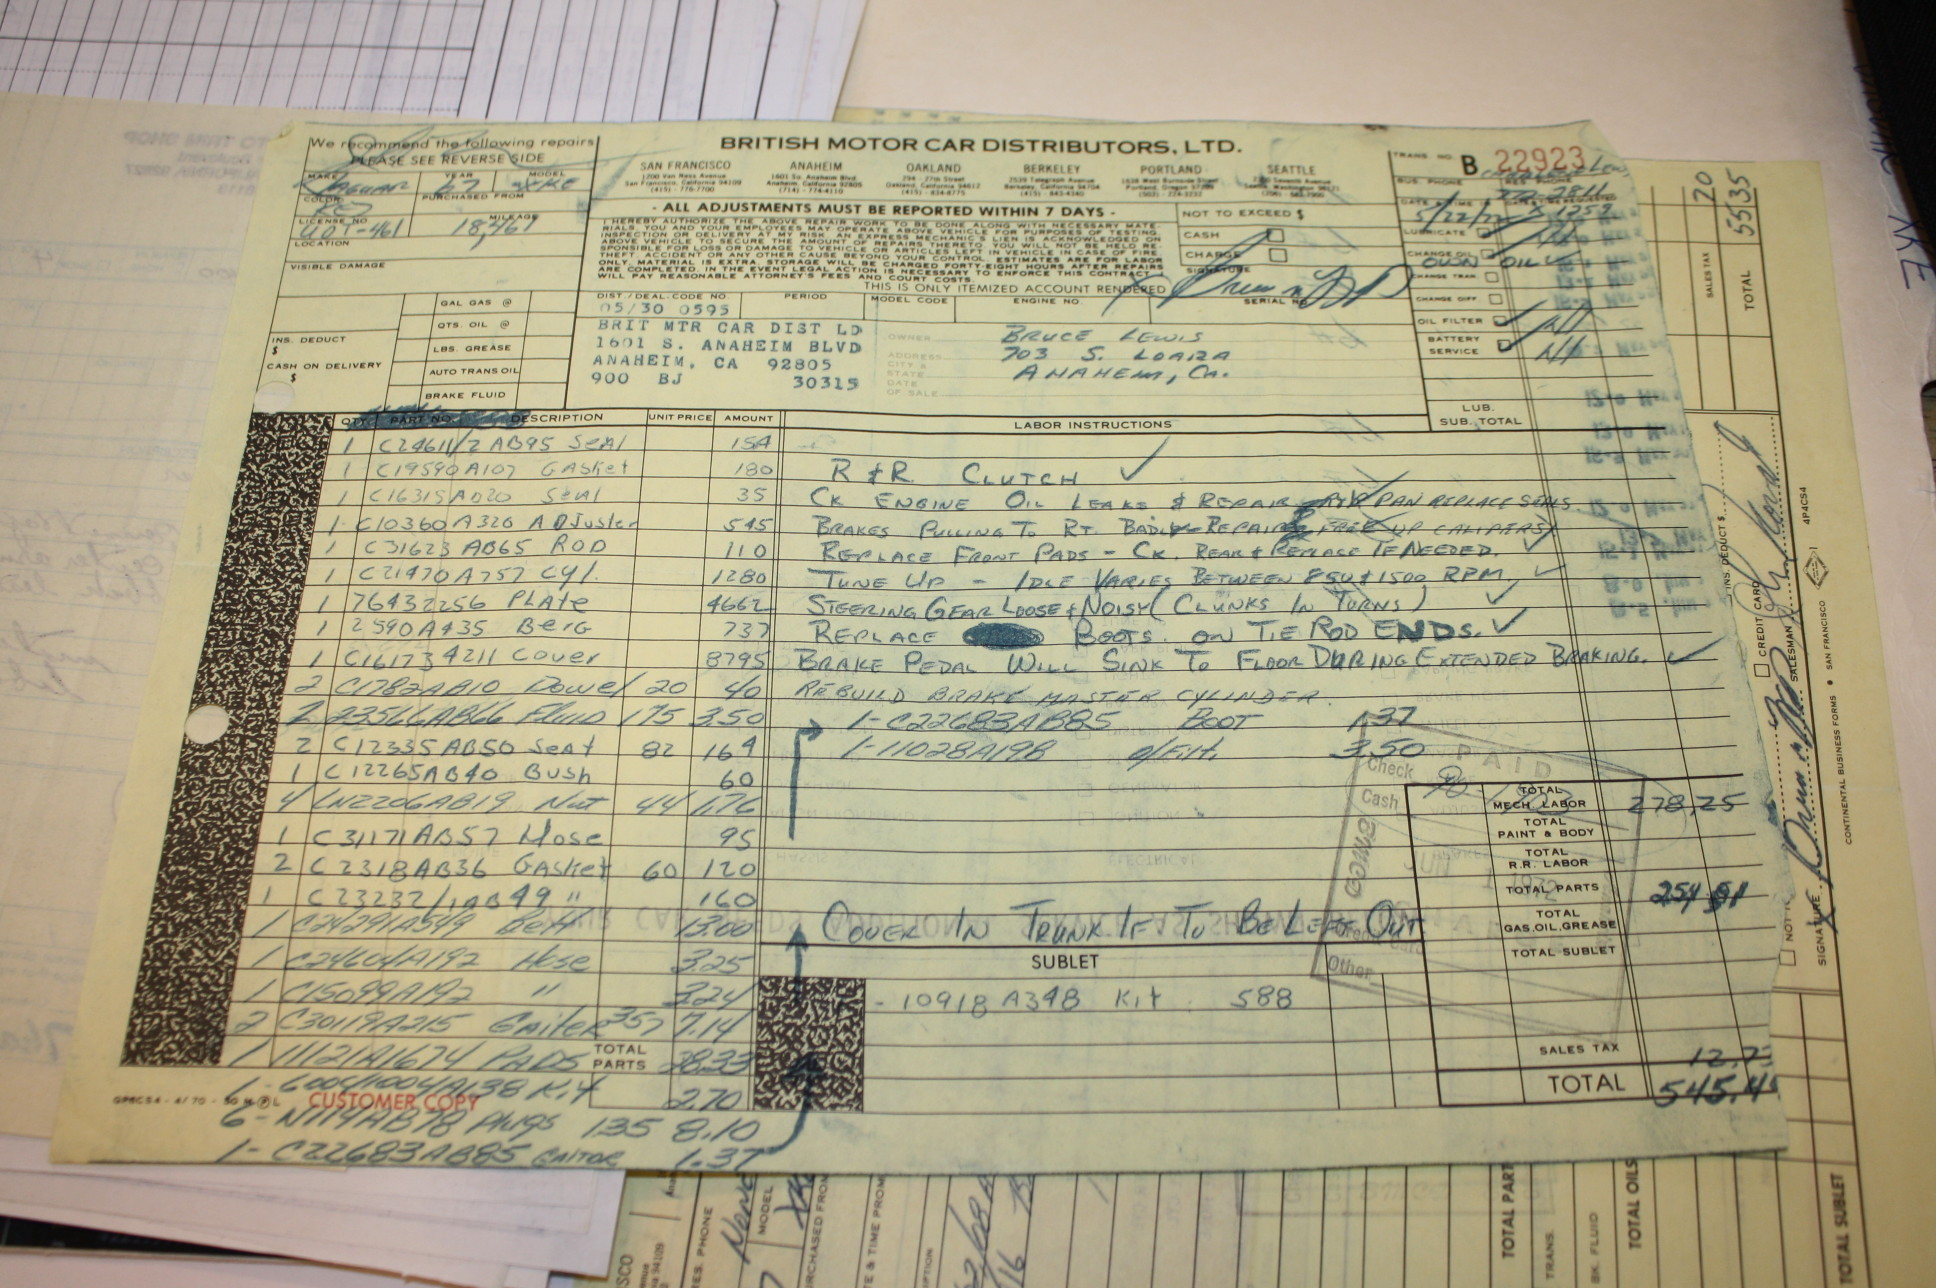 We recommend the following repairs
PLEASE SEE REVERSE SIDE
BRITISH MOTOR CAR DISTRIBUTORS, LTD.
SAN FRANCISCO
1200 Van Ness Avenue
San Francisco, California 94109
(415) - 776-7700
ANAHEIM
1601 So. Anaheim Blvd.
Anaheim, California 92805
OAKLAND
294 - 27th Street
Oakland, California 94612
(415) - 834-8775
BERKELEY
Berkeley, California 94704
PORTLAND
Portland, Oregon
SEATTLE
TRANS. NO. B 22923
MAKE YEAR MODEL
JAGUAR 67 XKE
COLOR PURCHASED FROM
RED
LICENSE NO. MILEAGE
UDT-461 18,461
LOCATION
VISIBLE DAMAGE
- ALL ADJUSTMENTS MUST BE REPORTED WITHIN 7 DAYS -
I HEREBY AUTHORIZE THE ABOVE REPAIR WORK TO BE DONE ALONG WITH NECESSARY MATE-
RIALS. YOU AND YOUR EMPLOYEES MAY OPERATE ABOVE VEHICLE FOR PURPOSES OF TESTING,
INSPECTION OR DELIVERY AT MY RISK. AN EXPRESS MECHANIC'S LIEN IS ACKNOWLEDGED ON
ABOVE VEHICLE TO SECURE THE AMOUNT OF REPAIRS THERETO. YOU WILL NOT BE HELD RE-
SPONSIBLE FOR LOSS OR DAMAGE TO VEHICLE OR ARTICLES LEFT IN VEHICLE IN CASE OF FIRE,
THEFT, ACCIDENT OR ANY OTHER CAUSE BEYOND YOUR CONTROL. ESTIMATES ARE FOR LABOR
ONLY, MATERIAL IS EXTRA. STORAGE WILL BE CHARGED FORTY-EIGHT HOURS AFTER REPAIRS
ARE COMPLETED. IN THE EVENT LEGAL ACTION IS NECESSARY TO ENFORCE THIS CONTRACT,
WILL PAY REASONABLE ATTORNEY'S FEES AND COURT COSTS.
THIS IS ONLY ITEMIZED ACCOUNT RENDERED
NOT TO EXCEED $
CASH
CHARGE
SIGNATURE
BUS. PHONE RES. PHONE
2811
5/22/72
LUBRICATE
CHANGE OIL
OIL
CHANGE TRAN.
CHANGE DIFF
OIL FILTER
BATTERY
SERVICE
LUB.
SUB. TOTAL
GAL GAS @
QTS. OIL @
LBS. GREASE
AUTO TRANS OIL
BRAKE FLUID
INS. DEDUCT
$
CASH ON DELIVERY
$
DIST./DEAL.CODE NO. PERIOD MODEL CODE ENGINE NO. SERIAL NO.
05/30 0595
BRIT MTR CAR DIST LD
1601 S. ANAHEIM BLVD
ANAHEIM, CA 92805
900 BJ 30315
OWNER BRUCE LEWIS
ADDRESS 703 S. LOARA
CITY &
STATE ANAHEIM, CA.
DATE
OF SALE
QTY. PART NO. DESCRIPTION UNIT PRICE AMOUNT
1 C24611/2 AB95 Seal 154
1 C19590A107 Gasket 180
1 C16315AD20 Seal 35
1 C10360A326 ADJuster 545
1 C31623 AB65 ROD 110
1 C21470A757 Cyl. 1280
1 76432256 PLate 4662
1 2590A435 Berg 737
1 C161734211 Cover 8795
2 C1782AB10 Dowel 20 40
2 23566AB66 Fluid 175 3.50
2 C12335AB50 Seat 82 164
1 C12265AB40 Bush 60
4 LN2206AB19 Nut 44 1.76
1 C31171AB57 Hose 95
2 C2318AB36 Gasket 60 120
1 C23232/1AB49 " 160
1 C24291A549 Belt 13.00
1 C24604A192 Hose 3.25
1 C15099A192 " 3.24
2 C30119A215 Gaiter 357 7.14
1 11121A1674 PADS 28.33
TOTAL
PARTS
1- 60041004A138 Kit 2.70
6- N119AB78 Plugs 135 8.10
1- C22683AB85 GAITOR 1.37
CUSTOMER COPY
LABOR INSTRUCTIONS
R & R CLUTCH
CK ENGINE OIL LEAKS & REPAIR R&R PAN REPLACE SEALS.
BRAKES PULLING TO RT. BADLY REPAIR FREE UP CALIPERS
REPLACE FRONT PADS - CK. REAR & REPLACE IF NEEDED.
TUNE UP - IDLE VARIES BETWEEN 850 & 1500 RPM.
STEERING GEAR LOOSE & NOISY (CLUNKS IN TURNS)
REPLACE BOOTS. ON TIE ROD ENDS.
BRAKE PEDAL WILL SINK TO FLOOR DURING EXTENDED BRAKING.
REBUILD BRAKE MASTER CYLINDER.
1-C22683AB85 BOOT 1.37
1-11028A198 o/Filt. 3.50
COVER IN TRUNK IF TO BE LEFT OUT
SUBLET
- 10918A348 Kit 588
PAID
Check
Cash
JUN 1 1972
Credit Card
Other
TOTAL
MECH. LABOR 278.25
TOTAL
PAINT & BODY
TOTAL
R.R. LABOR
TOTAL PARTS 254
TOTAL
GAS, OIL, GREASE
TOTAL SUBLET
SALES TAX
TOTAL 545.4
SALES TAX 20
TOTAL 5535
INS. DEDUCT $
CREDIT CARD
SALESMAN
SIGNATURE
4P4CS4
CONTINENTAL BUSINESS FORMS • SAN FRANCISCO
XKE
PHONE
MODEL
TOTAL PART
TRANS.
BK. FLUID
TOTAL OILS
TOTAL SUBLET